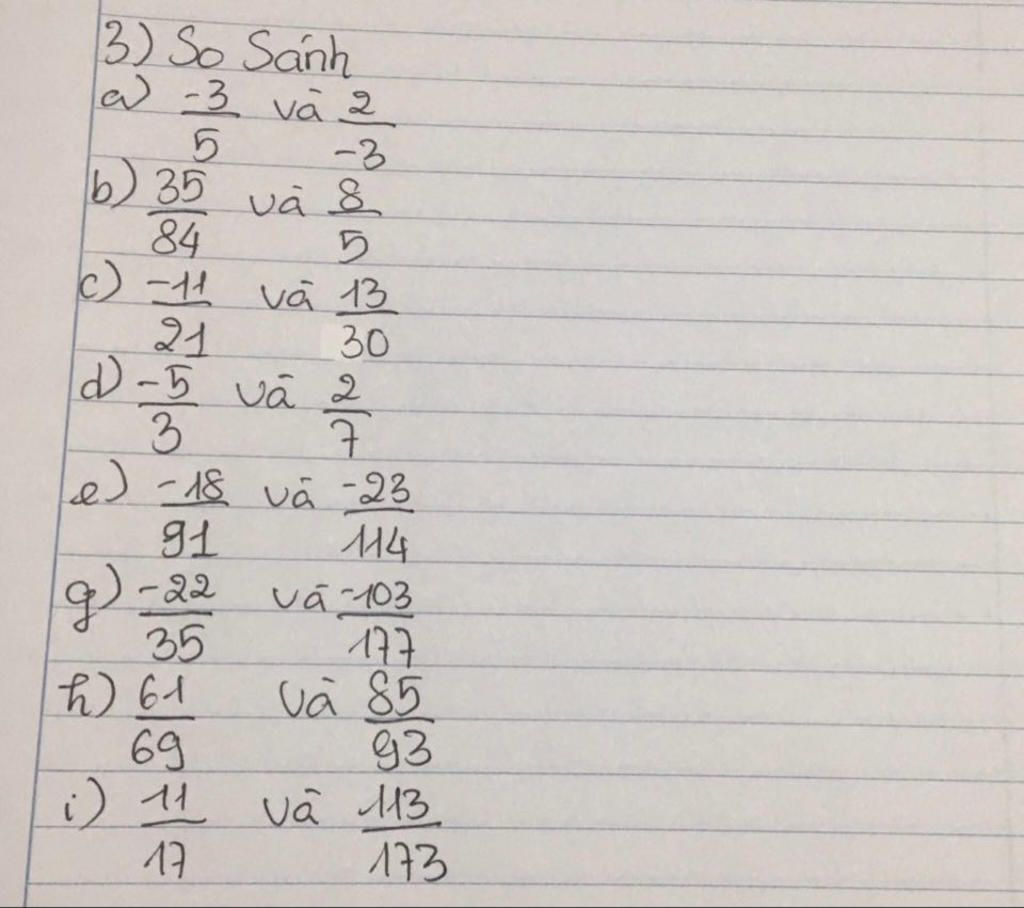 3) So Sánh
a) -3/5 và 2/-3
b) 35/84 và 8/5
c) -11/21 và 13/30
d) -5/3 và 2/7
e) -18/91 và -23/114
g) -22/35 và -103/177
h) 61/69 và 85/93
i) 11/17 và 113/173